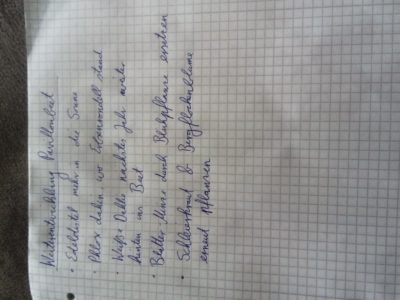 Weiterentwicklung Pavillonbeet
• Edeldistel mehr in die Sonne
• Phlox dahin, wo Edeldistel stand
• Weiße Dahlie nächstes Jahr weiter
hinten im Beet
Blatter Minze durch Blühpflanze ersetzen
• Schleierkraut & Bergflockenblume
erneut pflanzen